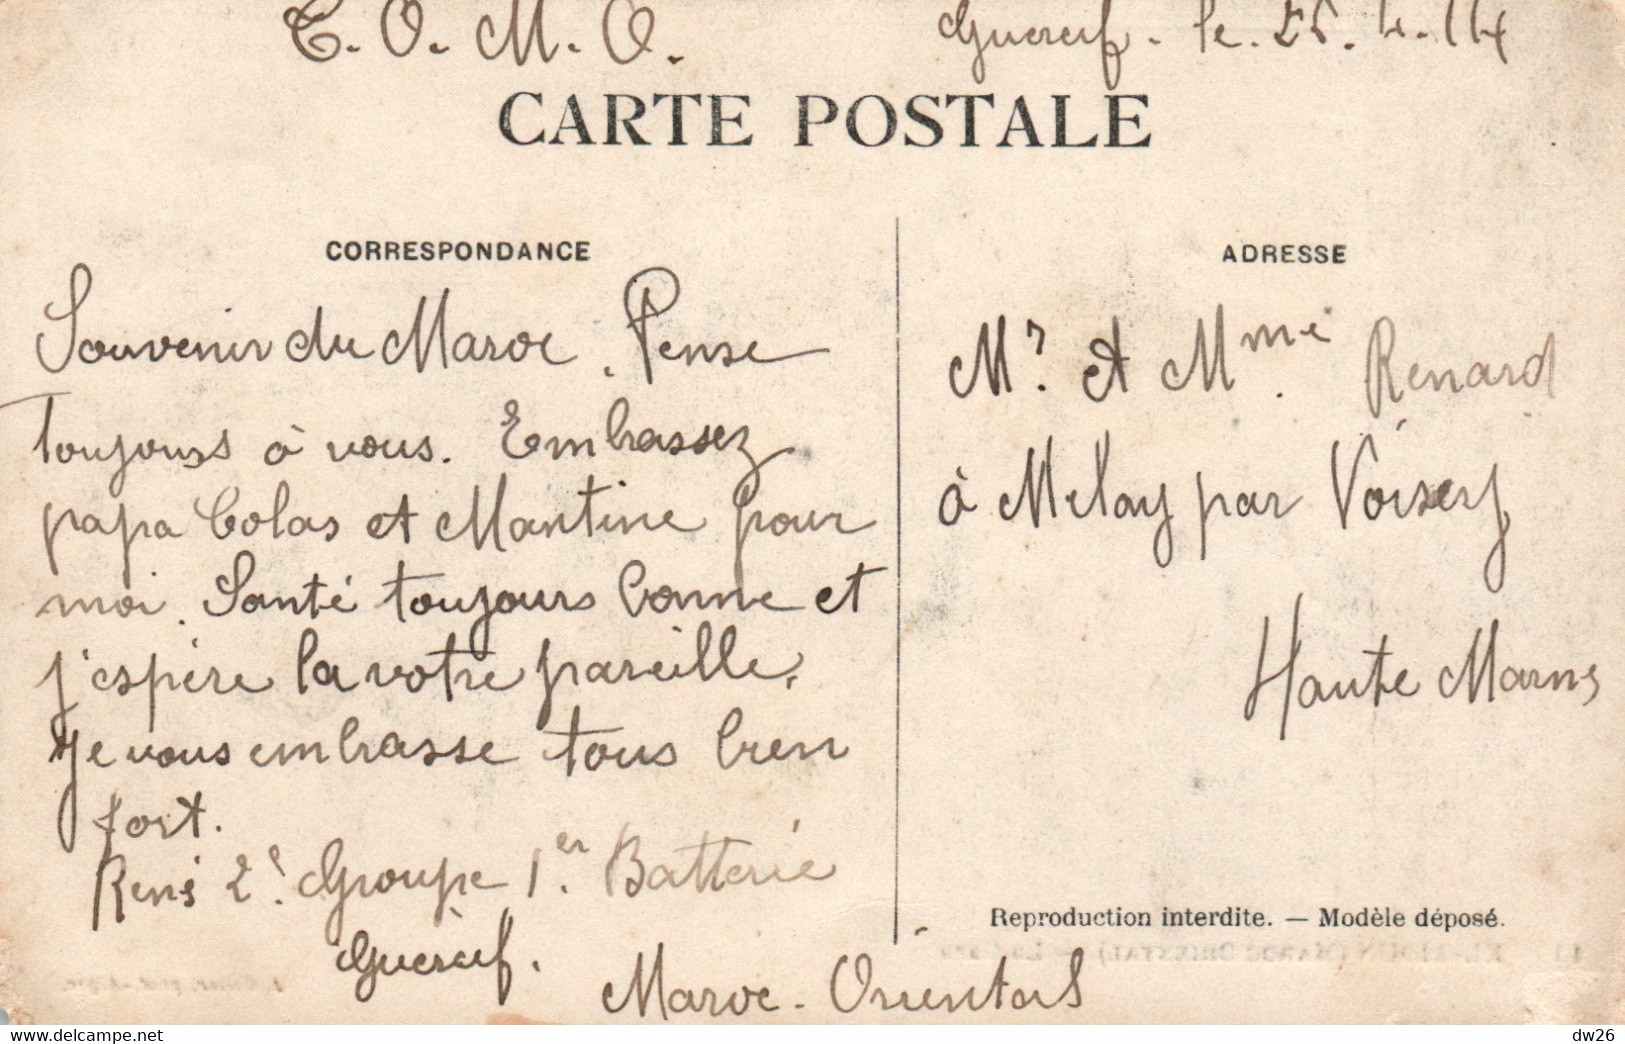 T. O. M. O. Guercif. le. 25. 4. 14
CARTE POSTALE
CORRESPONDANCE
Souvenir du Maroc. Pense
toujours à vous. Embrassez
papa Colas et Mantine pour
moi. Santé toujours bonne et
j'espère la votre pareille.
Je vous embrasse tous bien
fort.
René 2e Groupe 1er. Batterie
Guercif.
Maroc - Orientail
ADRESSE
Mr. et Mme. Renard
à Melay par Voisey
Haute Marne
Reproduction interdite. — Modèle déposé.
dw26